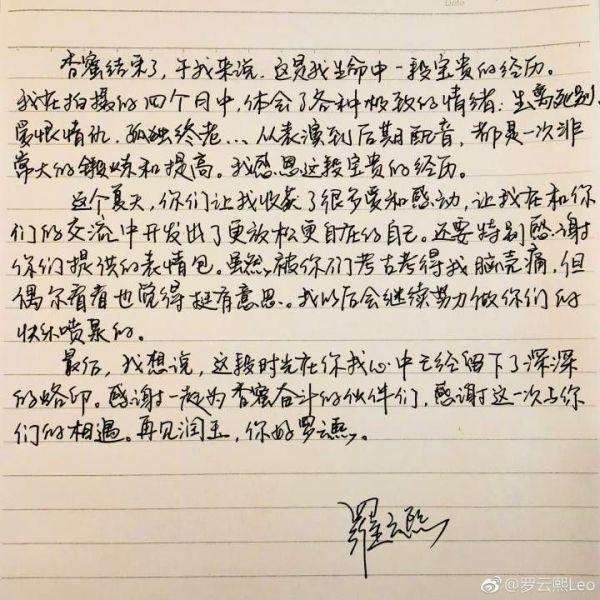 Date
香蜜结束了，于我来说，这是我生命中一段宝贵的经历。
我在拍摄的四个月中，体会了各种极致的情绪：生离死别，
爱恨情仇，孤独终老...从表演到后期配音，都是一次非
常大的锻炼和提高。我感恩这段宝贵的经历。
这个夏天，你们让我收获了很多爱和感动，让我在和你
们的交流中开发出了更放松更自在的自己。还要特别感谢
你们提供的表情包。虽然被你们考古考得我脑壳痛，但
偶尔看看也觉得挺有意思。我以后会继续努力做你们的
快乐喷泉的。
最后，我想说，这段时光在你我心中已经留下了深深
的烙印。感谢一起为香蜜奋斗的伙伴们，感谢这一次与你
们的相遇。再见润玉，你好罗云熙。
罗云熙
@罗云熙Leo